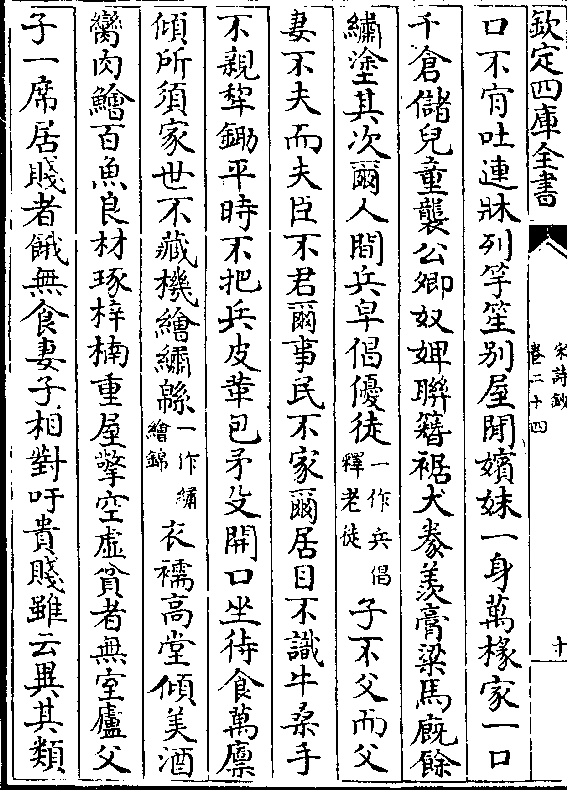 欽定四庫全書
宋詩鈔
卷二十四
十
口不肯吐連牀列竽笙别屋閒嬪姝一身萬椽家一口
千倉儲兒童襲公卿奴婢聯簪裾犬豢羨膏粱馬廐餘
繡塗其次爾人間兵皁倡優徒一作兵倡釋老徒子不父而父
妻不夫而夫臣不君爾事民不家爾居目不識牛桑手
不親犂鋤平時不把兵皮革包矛殳開口坐待食萬廪
傾所須家世不藏機繪繡緜一作繡繪錦衣襦高堂傾美酒
臠肉鱠百魚良材琢梓楠重屋擎空虛貧者無室廬父
子一席居賤者餓無食妻子相對吁貴賤雖云異其類